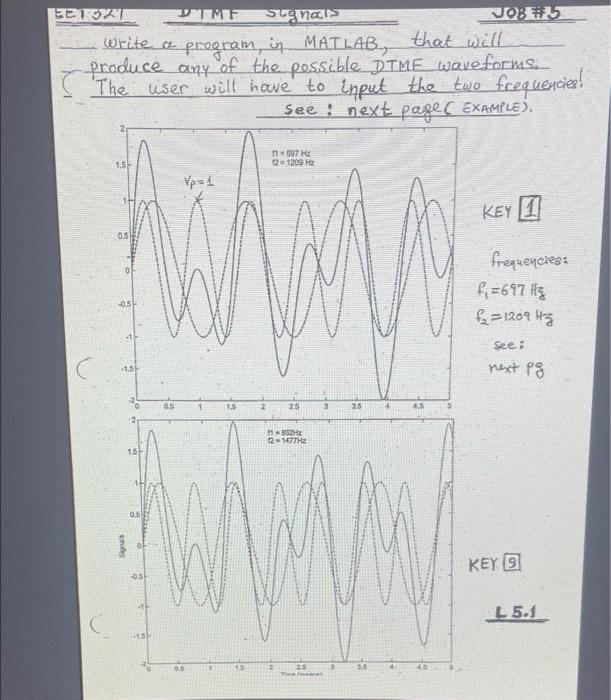 EET 321 DTMF Signals JOB #5
write a program, in MATLAB, that will
produce any of the possible DTMF waveforms.
The user will have to input the two frequencies!
see : next page( EXAMPLE).
f1 = 697 Hz
f2 = 1209 Hz
Vp=1
2
1.5
1
0.5
0
-0.5
-1
-1.5
-2
0 0.5 1 1.5 2 2.5 3 3.5 4 4.5 5
KEY 1
frequencies:
f1=697 Hz
f2=1209 Hz
see:
next pg
f1 = 852Hz
f2 = 1477Hz
2
1.5
1
0.5
0
-0.5
-1
-1.5
-2
Signals
0 0.5 1 1.5 2 2.5 3 3.5 4 4.5 5
KEY 9
L 5.1